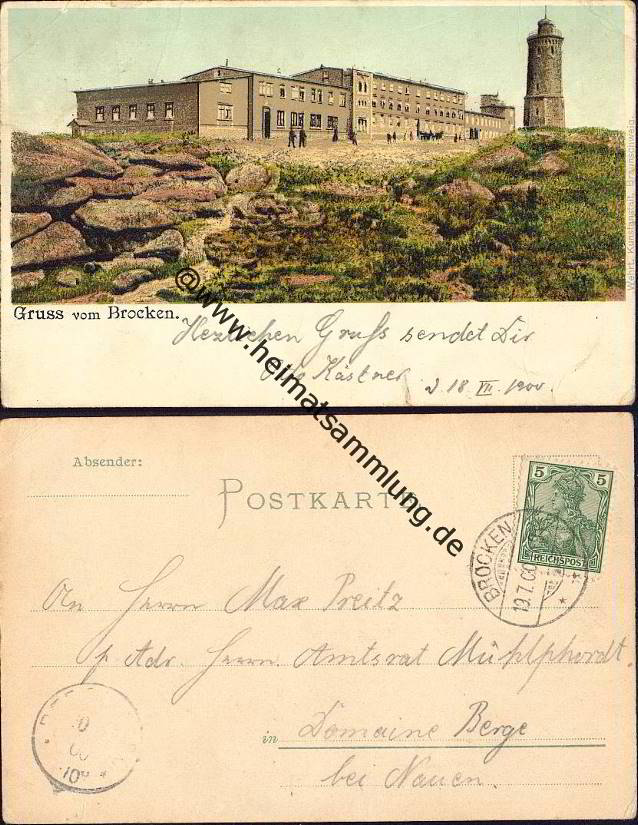 Gruss vom Brocken.
Herzlichen Gruss sendet Dir
Kästner d. 18. VII. 1900.
©www.heimatsammlung.de
Absender:
POSTKARTE
5 5
REICHSPOST
BROCKEN
19.7.00
An Herrn Max Preitz
p. Adr. Herrn Amtsrat Mühlphordt.
in Domaine Berge
bei Nauen.